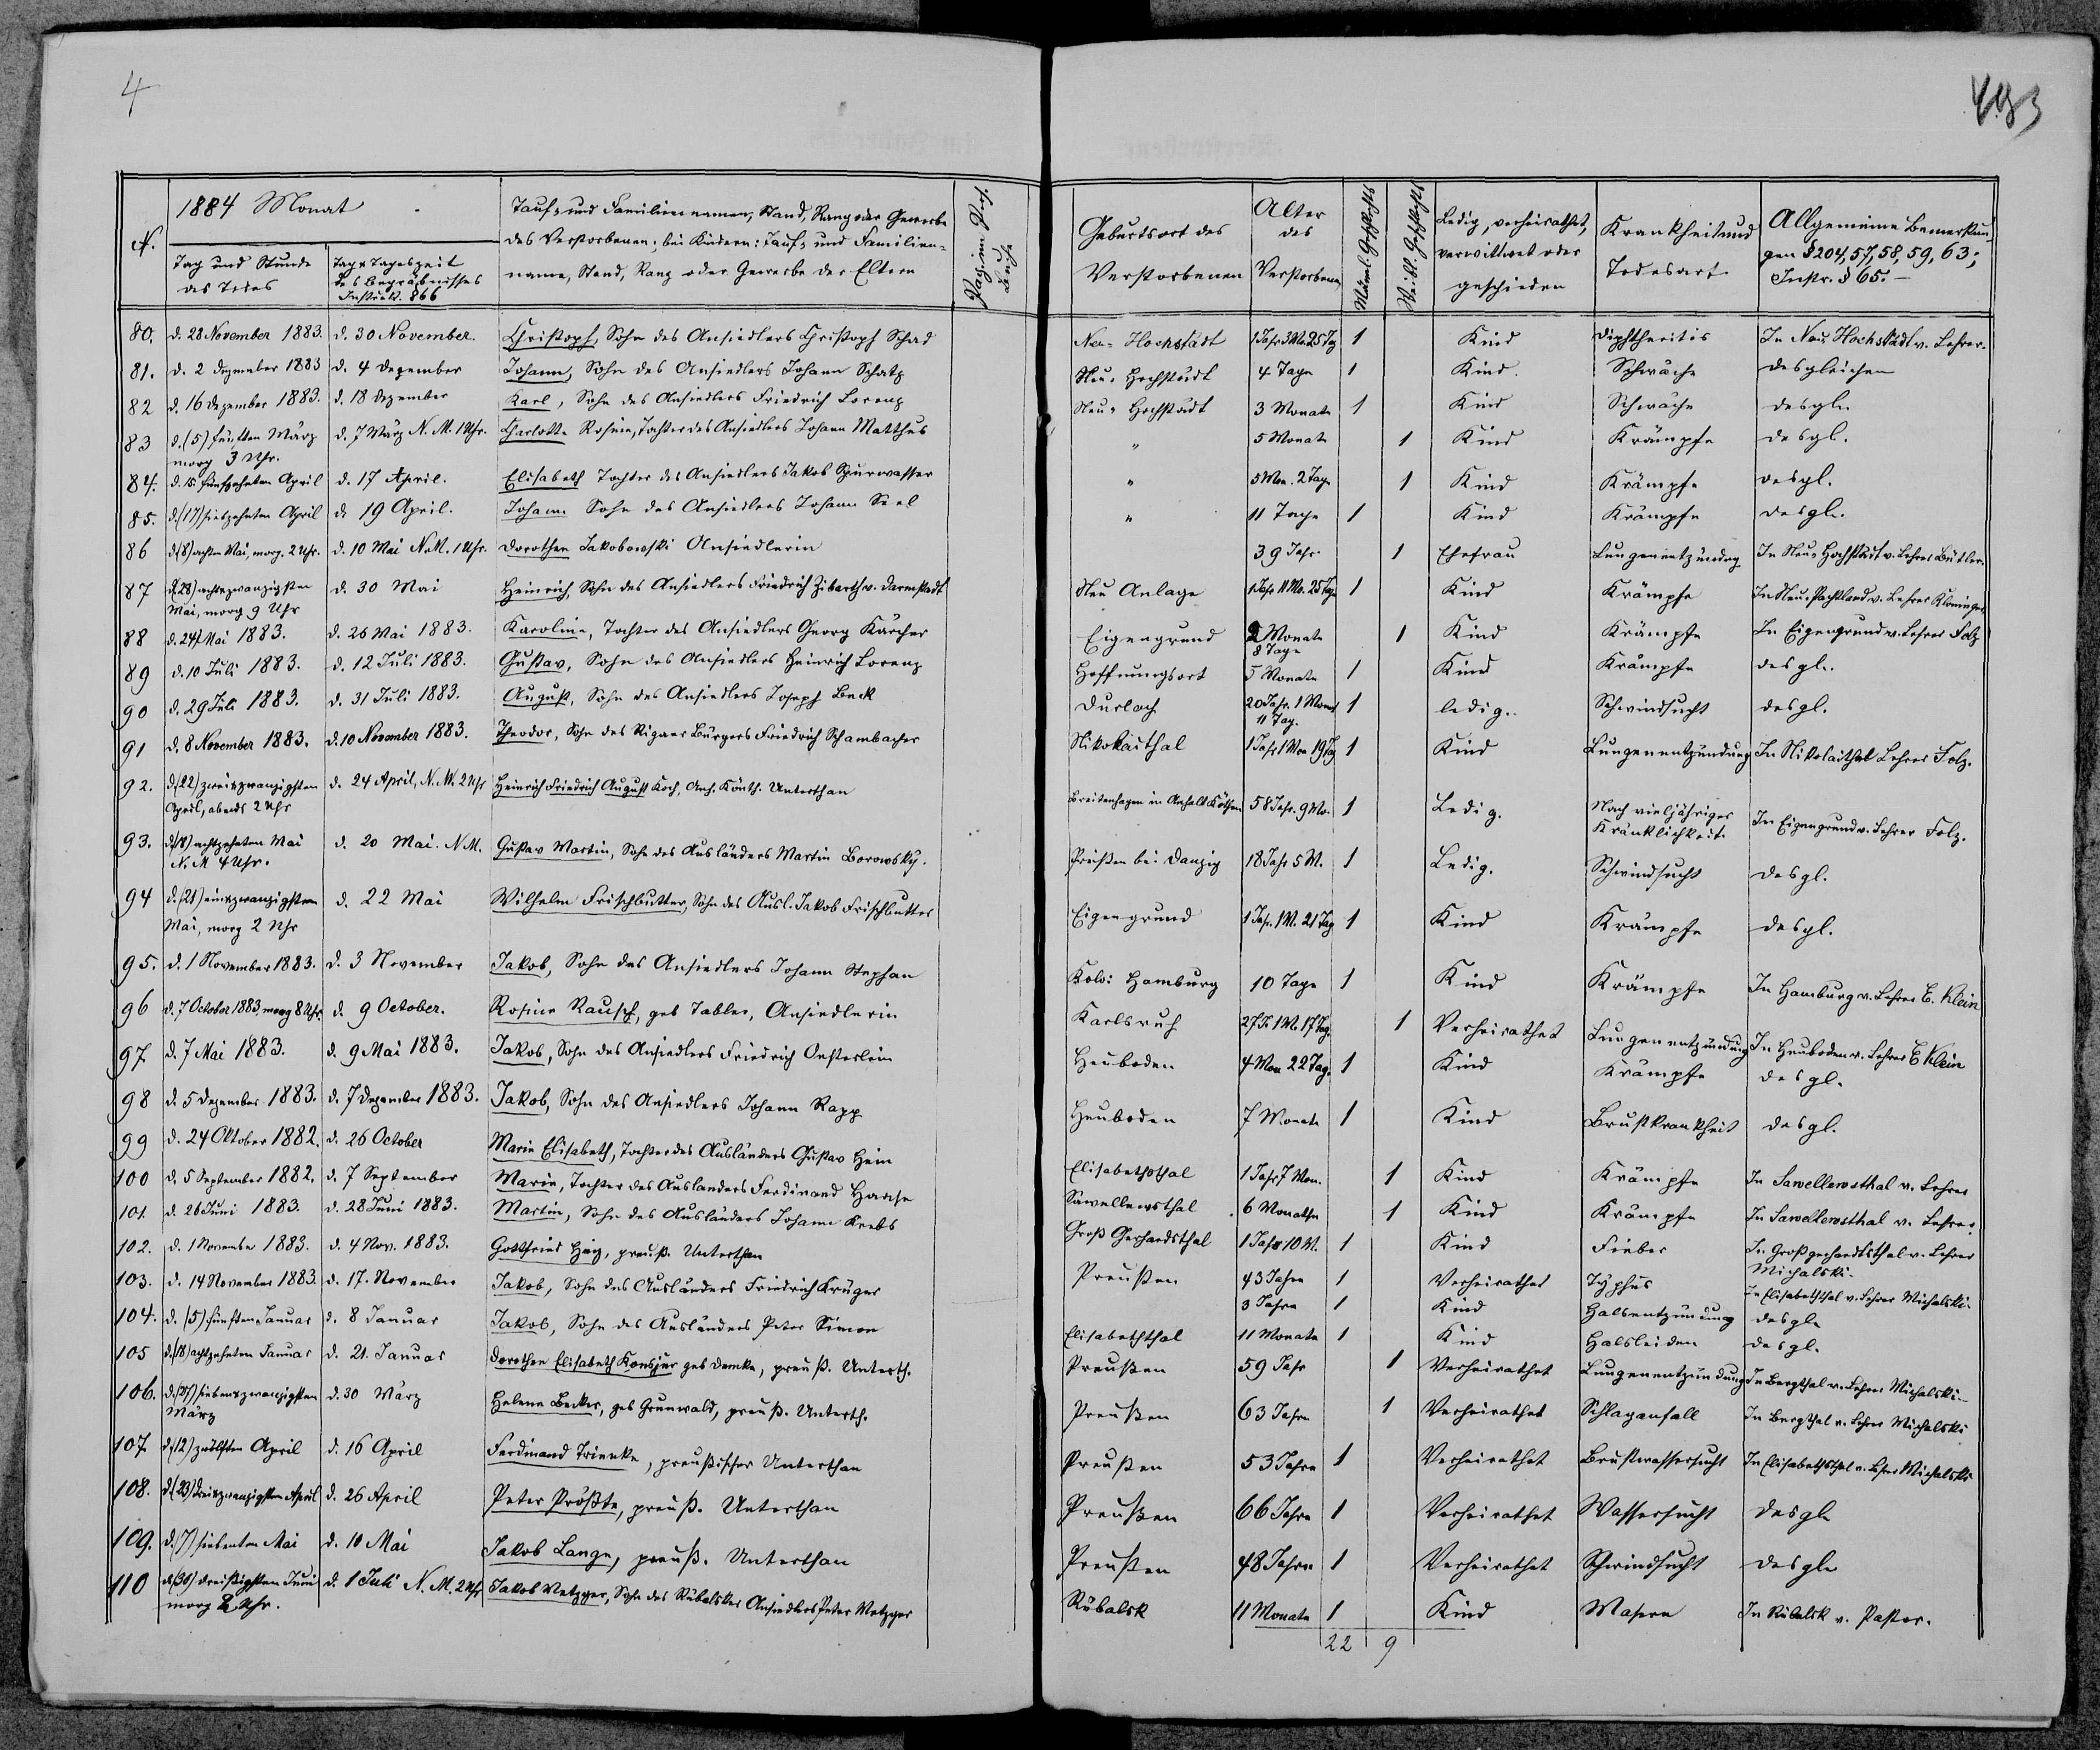 4
493
1884 Monat
N.
Tag und Stunde des Todes
Tag & Tageszeit des Begräbnisses Instrukt. § 66
Tauf- und Familiennamen, Stand, Rang oder Gewerbe des Verstorbenen; bei Kindern: Tauf- und Familienname, Stand, Rang oder Gewerbe der Eltern
Pag. im Pers. Buche
Geburtsort des Verstorbenen
Alter des Verstorbenen
Männl. Geschlechts
Weibl. Geschlechts
Ledig, verheirathet, verwittwet oder geschieden
Krankheit und Todesart
Allgemeine Bemerkungen § 204, 57, 58, 59, 63; Instr. § 65.
80. d. 28 November 1883. d. 30 November. Christoph, Sohn des Ansiedlers Christoph Schad Neu-Hochstädt 1 Jahr 3 Mo. 25 Tag 1 Kind Diphtheritis In Neu Hochstädt v. Lehrer.
81. d. 2 Dezember 1883 d. 4 Dezember Johann, Sohn des Ansiedlers Johann Schatz Neu-Hochstädt 4 Tage 1 Kind. Schwäche desgleichen
82 d. 16 Dezember 1883. d. 18 Dezember Karl, Sohn des Ansiedlers Friedrich Lorenz Neu-Hochstädt 3 Monate 1 Kind Schwäche desgl.
83 d. (5) fünften März morg 3 Uhr. d. 7 März N. M. 1 Uhr. Charlotte Rosine, Tochter des Ansiedlers Johann Matthus " 5 Monate 1 Kind Krämpfe desgl.
84. d. 15 fünfzehnten April d. 17 April. Elisabeth Tochter des Ansiedlers Jakob Spurwasser " 5 Mon. 2 Tage 1 Kind Krämpfe desgl.
85. d. (17) siebzehnten April d. 19 April. Johann Sohn des Ansiedlers Johann Seel " 11 Tage 1 Kind Krämpfe desgl.
86 d. (8) achten Mai, morg. 2 Uhr. d. 10 Mai N.M. 1 Uhr. Dorothea Jakobowski Ansiedlerin 39 Jahr 1 Ehefrau Lungenentzündug In Neu-Hochstädt v. Lehrer Büttler.
87 d. (28) achtzwanzigsten Mai, morg 9 Uhr d. 30 Mai Heinrich, Sohn des Ansiedlers Friedrich Zibarth v. Darmstadt Neu Anlage 1 Jahr 11 Mo. 25 Tage 1 Kind Krämpfe In Neu-Pachtland v. Lehrer Kloninger
88 d. 24 Mai 1883. d. 26 Mai 1883. Karoline, Tochter des Ansiedlers Georg Kärcher Eigengrund 2 Monate 8 Tage 1 Kind Krämpfe In Eigengrund v. Lehrer Folz
89 d. 10 Juli 1883. d. 12 Juli 1883. Gustav, Sohn des Ansiedlers Heinrich Lorenz Hoffnungsort 5 Monate 1 Kind Krämpfe desgl.
90 d. 29 Juli 1883. d. 31 Juli 1883. August, Sohn des Ansiedlers Joseph Beck Durlach 20 Jahr. 1 Monat 11 Tag. 1 ledig. Schwindsucht desgl.
91 d. 8 November 1883. d. 10 November 1883. Theodor, Sohn des Rigaer Bürgers Friedrich Schambacher Nikolaithal 1 Jahr 1 Mon 19 Tag 1 Kind Lungenentzündung In Nikolaithal Lehrer Folz.
92. d. (22) zweizwanzigsten April, abends 2 Uhr d. 24 April, N. M. 2 Uhr Heinrich Friedrich August Koch, Anh. Könth. Unterthan Breitenhagen in Anhalt Köthen 58 Jahr. 9 Mo. 1 Ledig. Nach vieljähriger Kränklichkeit. In Eigengrund v. Lehrer Folz.
93. d. (18) achtzehnten Mai N. M 4 Uhr. d. 20 Mai. N.M. Gustav Martin, Sohn des Ausländers Martin Borowsky. Preußen bei Danzig 18 Jahr 5 M. 1 Ledig. Schwindsucht desgl.
94 d. (21) einzwanzigsten Mai, morg 2 Uhr d. 22 Mai Wilhelm Frischbutter, Sohn des Ausl. Jakob Frischbutter Eigengrund 1 Jahr. 1 M. 21 Tag 1 Kind Krämpfe desgl.
95. d. 1 November 1883. d. 3 November Jakob, Sohn des Ansiedlers Johann Stephan Kolo: Hamburg 10 Tage 1 Kind Krämpfe In Hamburg v. Lehrer E. Klein
96 d. 7 October 1883, morg 8 Uhr. d. 9 October. Rosine Rausch, geb Tabler, Ansiedlerin Karlsruh 27 J. 1 M. 17 Tag. 1 Verheirathet Lungenentzündung In Heuboden v. Lehrer E Klein
97. d. 7 Mai 1883. d. 9 Mai 1883. Jakob, Sohn des Ansiedlers Friedrich Oesterlein Heuboden 4 Mon 22 Tag. 1 Kind Krämpfe desgl.
98 d. 5 Dezember 1883. d. 7 Dezember 1883. Jakob, Sohn des Ansiedlers Johann Rapp Heuboden 7 Monate 1 Kind Brustkrankheit desgl.
99 d. 24 Oktober 1882. d. 26 October Marie Elisabeth, Tochter des Ausländers Gustav Hein Elisabeththal 1 Jahr 7 Mon. 1 Kind Krämpfe In Sawellewsthal v. Lehrer
100 d. 5 September 1882. d. 7 September Marie, Tochter des Ausländers Ferdinand Haase Sawellewsthal 6 Monathe 1 Kind Krämpfe In Sawellewsthal v. Lehrer
101. d. 26 Juni 1883. d. 28 Juni 1883. Martin, Sohn des Ausländers Johann Krebs Groß Gerhardsthal 1 Jahr 10 M. 1 Kind Fieber In Großgerhardtsthal v. Lehrer Michalski.
102. d. 1 November 1883. d. 4 Nov. 1883. Gottfried Hinz, preuß. Unterthan Preußen 43 Jahre 1 Verheirathet Typhus In Elisabeththal v. Lehrer Michalski.
103. d. 14 November 1883. d. 17. November Jakob, Sohn des Ausländers Friedrich Krüger 3 Jahre 1 Kind Halsentzündung desgl.
104. d. (5) fünften Januar d. 8 Januar Jakob, Sohn des Ausländers Peter Simon Elisabeththal 11 Monate 1 Kind Halsleiden desgl.
105 d. (18) achtzehnten Januar d. 21. Januar Dorothea Elisabeth Konsjur geb Demke, preuß. Unterth. Preußen 59 Jahr 1 Verheirathet Lungenentzündung In Bergthal v. Lehrer Michalski
106. d. (27) siebenzwanzigsten März d. 30 März Helene Becker, geb Grunwald, preuß. Unterth. Preußen 63 Jahre 1 Verheirathet Schlaganfall In Bergthal v. Lehrer Michalski
107 d. (12) zwölften April d. 16 April Ferdinand Trienke, preußischer Unterthan Preußen 53 Jahre 1 Verheirathet Brustwassersucht In Elisabethsthal v. Lehrer Michalski
108. d. (23) dreizwanzigsten April d. 26 April Peter Prößte, preuß. Unterthan Preußen 66 Jahre 1 Verheirathet Wassersucht desgl.
109. d. (7) siebenten Mai d. 10 Mai Jakob Lange, preuß. Unterthan Preußen 48 Jahre 1 Verheirathet Schwindsucht desgl.
110 d. (30) dreißigsten Juni morg 2 Uhr. d. 1 Juli N. M. 2 Uhr Jakob Metzger, Sohn des Rübalsker Ansiedlers Peter Metzger Rübalsk 11 Monate 1 Kind Masern In Rübalsk v. Pastor.
22 9